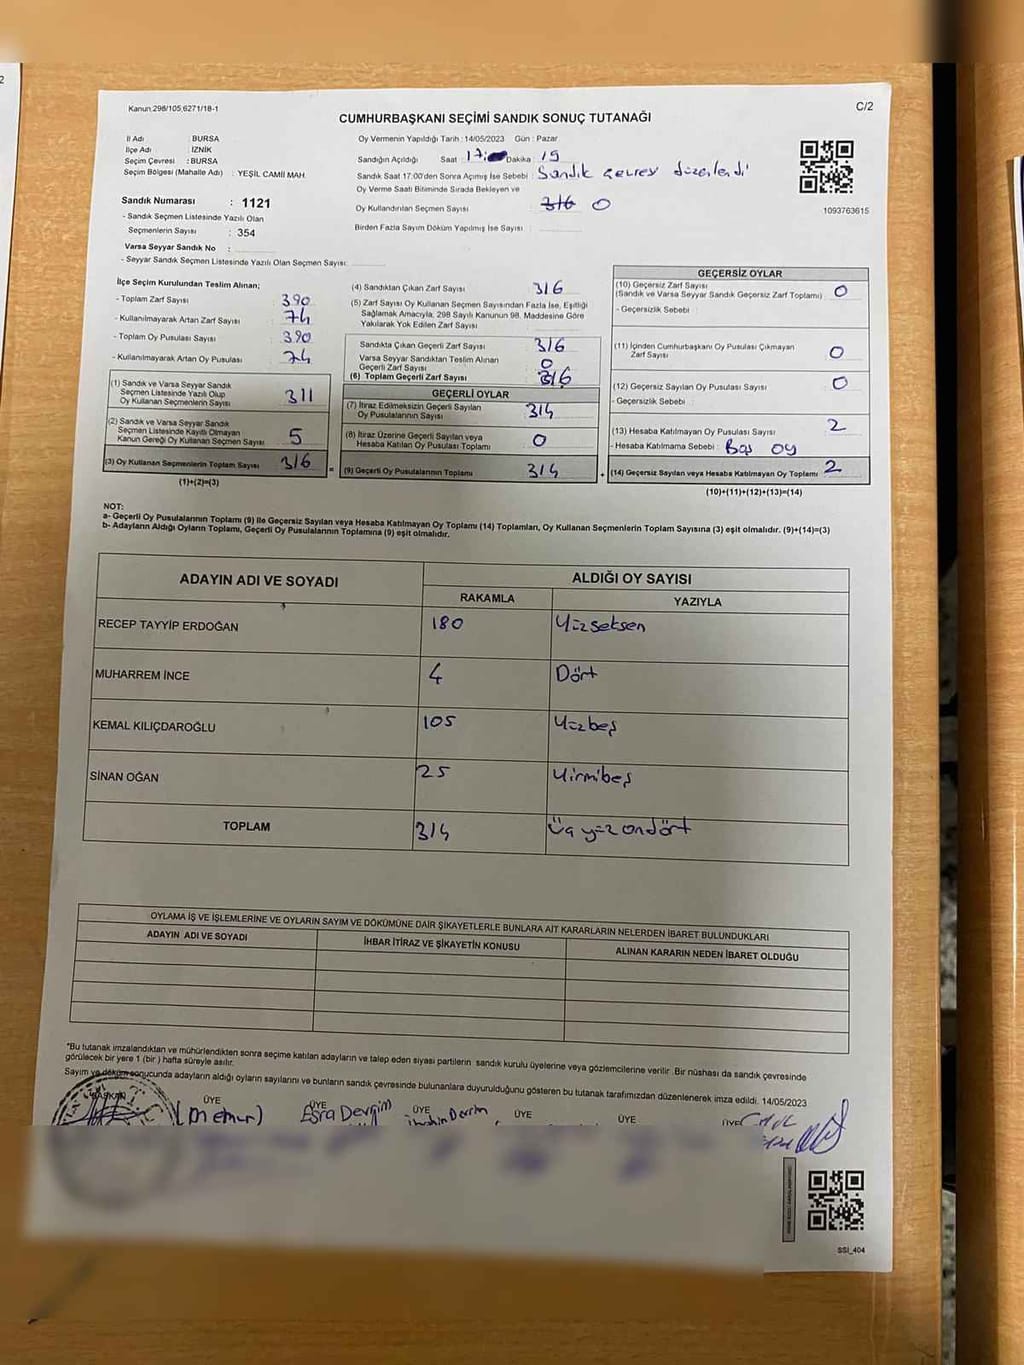 Kanun:298/105,6271/18-1
C/2
CUMHURBAŞKANI SEÇİMİ SANDIK SONUÇ TUTANAĞI
İl Adı : BURSA
İlçe Adı : İZNİK
Seçim Çevresi : BURSA
Seçim Bölgesi (Mahalle Adı) : YEŞİL CAMİİ MAH.
Sandık Numarası : 1121
- Sandık Seçmen Listesinde Yazılı Olan
Seçmenlerin Sayısı : 354
Varsa Seyyar Sandık No :
- Seyyar Sandık Seçmen Listesinde Yazılı Olan Seçmen Sayısı:
Oy Vermenin Yapıldığı Tarih : 14/05/2023 Gün : Pazar
Sandığın Açıldığı Saat 17: Dakika 15
Sandık Saat 17.00'den Sonra Açılmış İse Sebebi : Sandık çevresi düzenlendi
Oy Verme Saati Bitiminde Sırada Bekleyen ve
Oy Kullandırılan Seçmen Sayısı 316 0
Birden Fazla Sayım Döküm Yapılmış İse Sayısı :
1093763615
İlçe Seçim Kurulundan Teslim Alınan;
- Toplam Zarf Sayısı 390
- Kullanılmayarak Artan Zarf Sayısı 74
- Toplam Oy Pusulası Sayısı 390
- Kullanılmayarak Artan Oy Pusulası 74
(1) Sandık ve Varsa Seyyar Sandık
Seçmen Listesinde Yazılı Olup
Oy Kullanan Seçmenlerin Sayısı 311
(2) Sandık ve Varsa Seyyar Sandık
Seçmen Listesinde Kayıtlı Olmayan
Kanun Gereği Oy Kullanan Seçmen Sayısı 5
(3) Oy Kullanan Seçmenlerin Toplam Sayısı 316
(1)+(2)=(3)
(4) Sandıktan Çıkan Zarf Sayısı 316
(5) Zarf Sayısı Oy Kullanan Seçmen Sayısından Fazla İse, Eşitliği
Sağlamak Amacıyla, 298 Sayılı Kanunun 98. Maddesine Göre
Yakılarak Yok Edilen Zarf Sayısı
Sandıkta Çıkan Geçerli Zarf Sayısı 316
Varsa Seyyar Sandıktan Teslim Alınan
Geçerli Zarf Sayısı 0
(6) Toplam Geçerli Zarf Sayısı 316
GEÇERLİ OYLAR
(7) İtiraz Edilmeksizin Geçerli Sayılan
Oy Pusulalarının Sayısı 314
(8) İtiraz Üzerine Geçerli Sayılan veya
Hesaba Katılan Oy Pusulası Toplamı 0
= (9) Geçerli Oy Pusulalarının Toplamı 314
GEÇERSİZ OYLAR
(10) Geçersiz Zarf Sayısı
(Sandık ve Varsa Seyyar Sandık Geçersiz Zarf Toplamı) 0
- Geçersizlik Sebebi :
(11) İçinden Cumhurbaşkanı Oy Pusulası Çıkmayan
Zarf Sayısı 0
(12) Geçersiz Sayılan Oy Pusulası Sayısı 0
- Geçersizlik Sebebi :
(13) Hesaba Katılmayan Oy Pusulası Sayısı 2
- Hesaba Katılmama Sebebi : Boş oy
+ (14) Geçersiz Sayılan veya Hesaba Katılmayan Oy Toplamı 2
(10)+(11)+(12)+(13)=(14)
NOT:
a- Geçerli Oy Pusulalarının Toplamı (9) ile Geçersiz Sayılan veya Hesaba Katılmayan Oy Toplamı (14) Toplamları, Oy Kullanan Seçmenlerin Toplam Sayısına (3) eşit olmalıdır. (9)+(14)=(3)
b- Adayların Aldığı Oyların Toplamı, Geçerli Oy Pusulalarının Toplamına (9) eşit olmalıdır.
ADAYIN ADI VE SOYADI ALDIĞI OY SAYISI
RAKAMLA YAZIYLA
RECEP TAYYİP ERDOĞAN 180 Yüzseksen
MUHARREM İNCE 4 Dört
KEMAL KILIÇDAROĞLU 105 Yüzbeş
SİNAN OĞAN 25 Yirmibeş
TOPLAM 314 Üç yüz ondört
OYLAMA İŞ VE İŞLEMLERİNE VE OYLARIN SAYIM VE DÖKÜMÜNE DAİR ŞİKAYETLERLE BUNLARA AİT KARARLARIN NELERDEN İBARET BULUNDUKLARI
ADAYIN ADI VE SOYADI İHBAR İTİRAZ VE ŞİKAYETİN KONUSU ALINAN KARARIN NEDEN İBARET OLDUĞU
*Bu tutanak imzalandıktan ve mühürlendikten sonra seçime katılan adayların ve talep eden siyasi partilerin sandık kurulu üyelerine veya gözlemcilerine verilir. Bir nüshası da sandık çevresinde
görülecek bir yere 1 (bir ) hafta süreyle asılır.
Sayım ve döküm sonucunda adayların aldığı oyların sayılarını ve bunların sandık çevresinde bulunanlara duyurulduğunu gösteren bu tutanak tarafımızdan düzenlenerek imza edildi. 14/05/2023
BAŞKAN ÜYE ÜYE ÜYE ÜYE ÜYE ÜYE
(memur) Esra Devrim
SSI_404